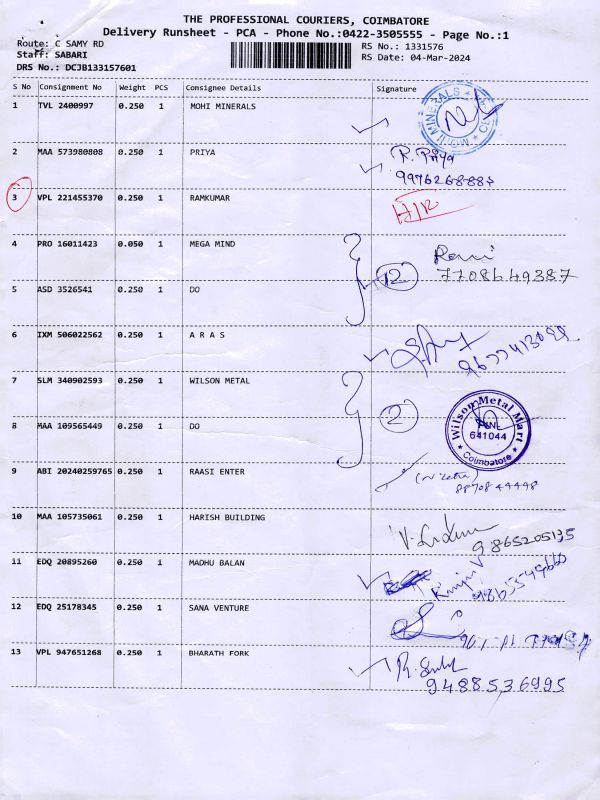 THE PROFESSIONAL COURIERS, COIMBATORE
Delivery Runsheet - PCA - Phone No.:0422-3505555 - Page No.:1
Route: C SAMY RD RS No.: 1331576
Staff: SABARI RS Date: 04-Mar-2024
DRS No.: DCJB133157601
S No Consignment No Weight PCS Consignee Details Signature
1 TVL 2400997 0.250 1 MOHI MINERALS
MINERALS
2 MAA 573980808 0.250 1 PRIYA R. Priya
3 VPL 221455370 0.250 1 RAMKUMAR
4 PRO 16011423 0.050 1 MEGA MIND
12 7708649387
5 ASD 3526541 0.250 1 DO
6 IXM 506022562 0.250 1 A R A S
7 SLM 340902593 0.250 1 WILSON METAL
2 Wilson Metal Mart
641044
Coimbatore
8 MAA 109565449 0.250 1 DO
9 ABI 20240259765 0.250 1 RAASI ENTER
10 MAA 105735061 0.250 1 HARISH BUILDING
9865205135
11 EDQ 20895260 0.250 1 MADHU BALAN
12 EDQ 25178345 0.250 1 SANA VENTURE
13 VPL 947651268 0.250 1 BHARATH FORK
9488536995